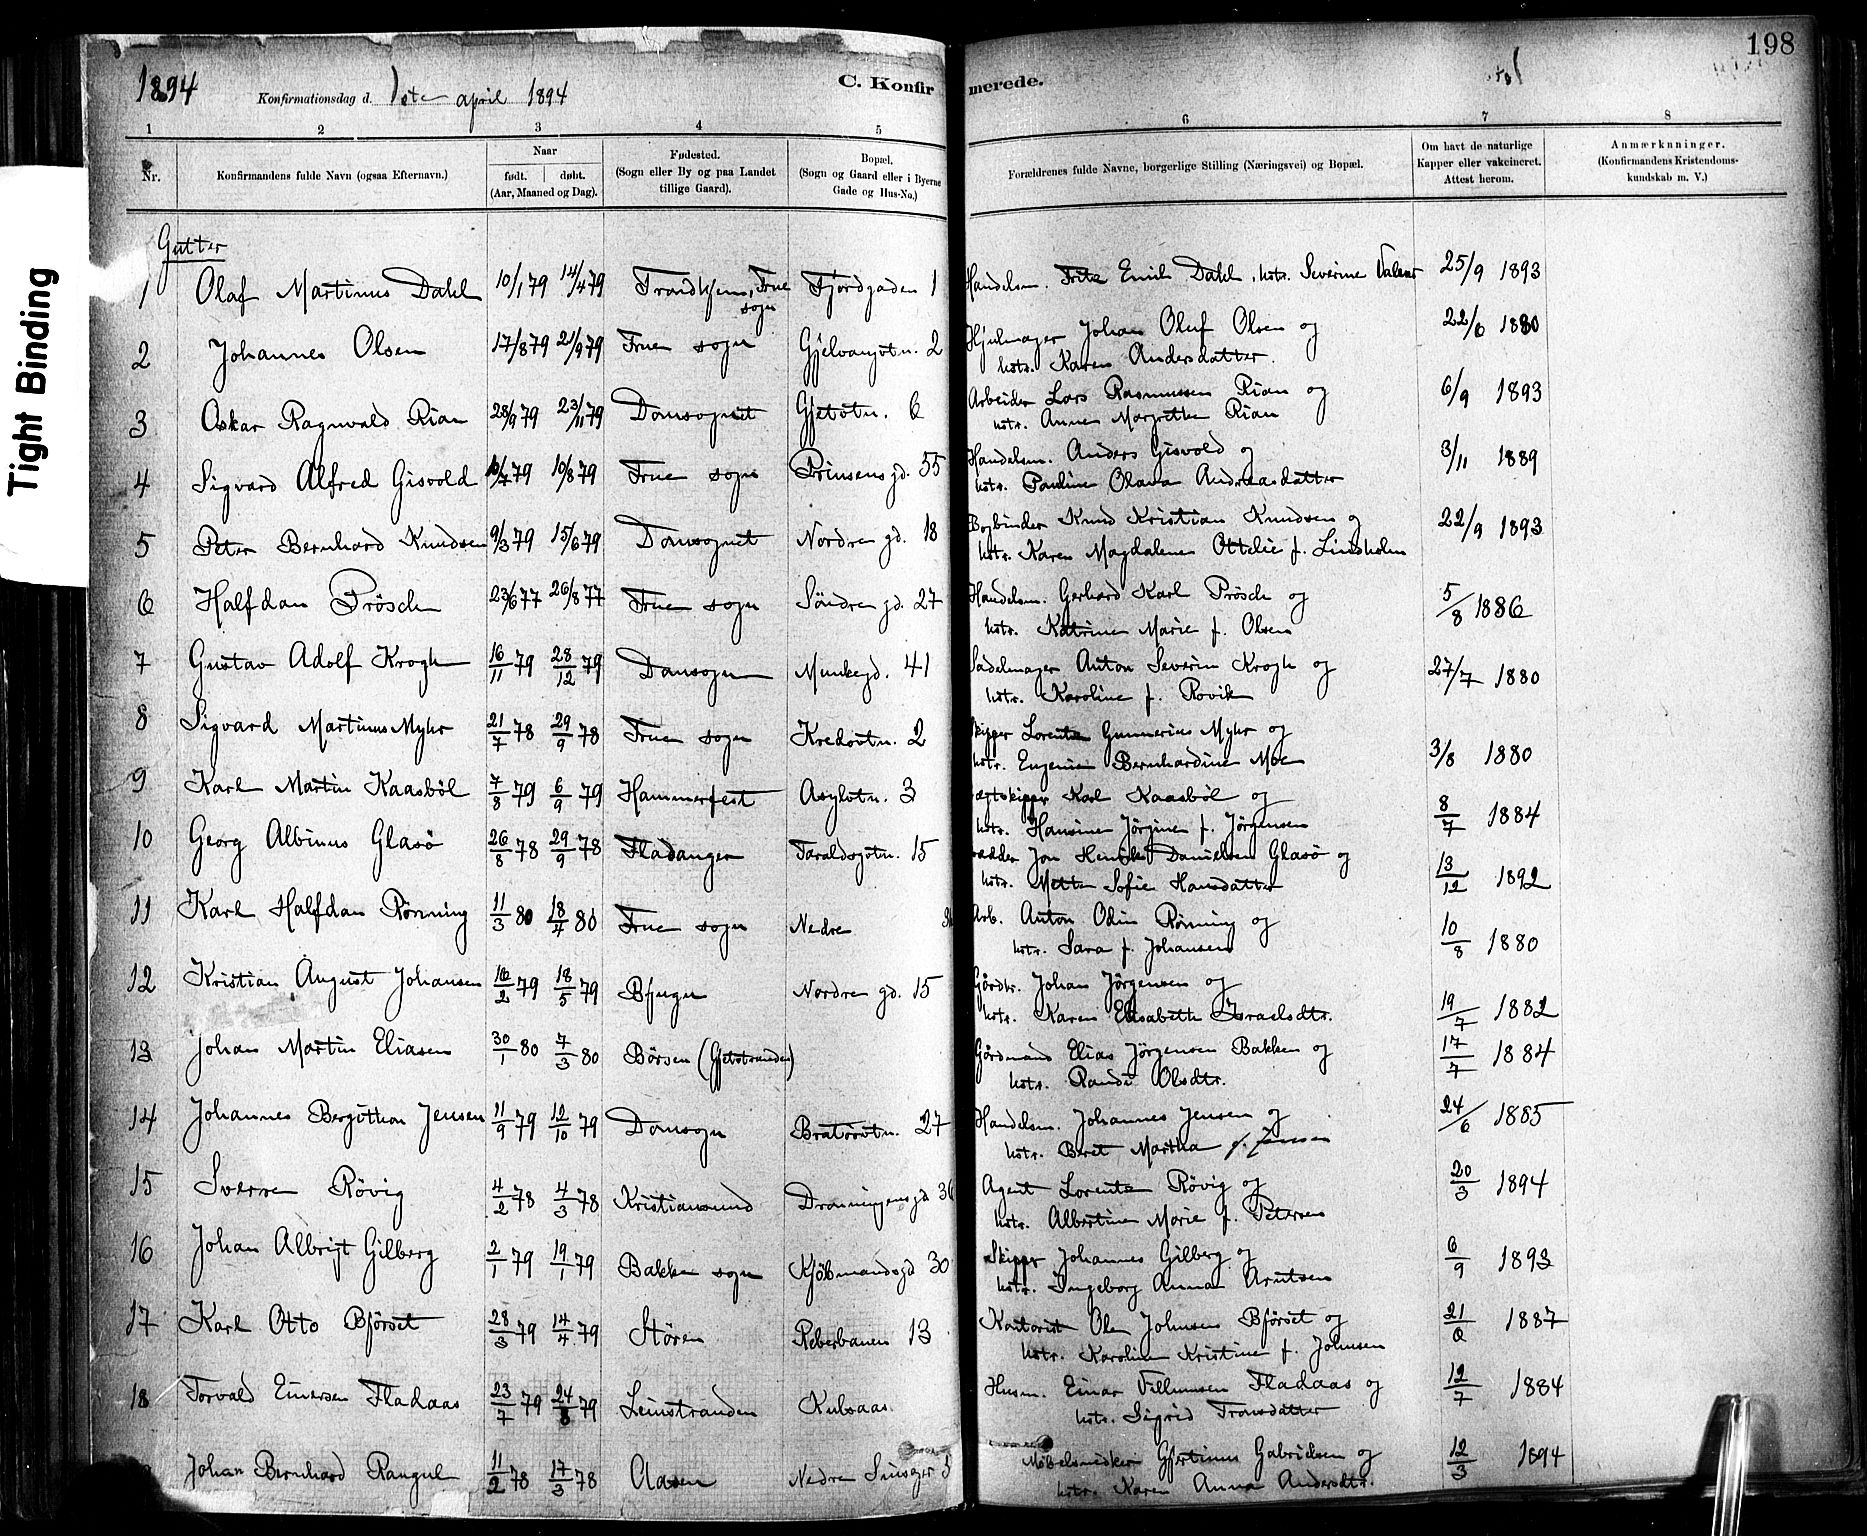 Tight Binding
198
1894
Konfirmationsdag d. 1ste april 1894
C. Konfirmerede.
1 2 3 4 5 6 7 8
Nr.
Konfirmandens fulde Navn (ogsaa Efternavn.)
Naar
født. døbt.
(Aar, Maaned og Dag).
Fødested.
(Sogn eller By og paa Landet
tillige Gaard).
Bopæl.
(Sogn og Gaard eller i Byerne
Gade og Hus-No.)
Forældrenes fulde Navne, borgerlige Stilling (Næringsvei) og Bopæl.
Om havt de naturlige
Kopper eller vakcineret.
Attest herom.
Anmærkninger.
(Konfirmandens Kristendoms-
kundskab m. V.)
Gutter
1 Olaf Martinus Dahl 10/1 79 14/4 79 Trondhjem, Frue sogn Fjordgaden 1 Handelsm. Fritz Emil Dahl, hstr. Severine 25/9 1893
2 Johannes Olsen 17/8 79 21/9 79 Frue sogn Gjelvangstn. 2 Hjulmager Johan Oluf Olsen og
hstr. Karen Andersdatter. 22/6 1880
3 Oskar Ragnvald Rian 28/9 79 23/11 79 Domsognet Gjetstn. 6 Arbeider Lars Rasmussen Rian og
hstr. Anne Margrethe Rian 6/9 1893
4 Sigvard Alfred Gisvold 10/7 79 10/8 79 Frue sogn Prinsens gd. 55 Handelsm. Anders Gisvold og
hstr. Pauline Olava Andreasdatter 3/11 1889
5 Peter Bernhard Knudsen 9/3 79 15/6 79 Domsognet Nordre gd. 18 Bogbinder Knud Kristian Knudsen og
hstr. Karen Magdalene Ottelie f. Lindholm 22/9 1893
6 Halfdan Prösch 23/6 77 26/8 77 Frue sogn Söndre gd. 27 Handelsm. Gerhard Karl Prösch og
hstr. Katrine Marie f. Olsen 5/8 1886
7 Gustav Adolf Krogh 16/11 79 28/12 79 Domsogn Munkegd. 41 Sadelmager Anton Severin Krogh og
hstr. Karoline f. Rovik 27/7 1880
8 Sigvard Martinus Myhr 21/7 78 29/9 78 Frue sogn Kredsvtn. 2 Skipper Lorentz Gunnerius Myhr og
hstr. Eugenie Bernhardine Moe 3/8 1880
9 Karl Martin Kaasböl 7/8 79 6/9 79 Hammerfest Asylvtn. 3 Jægtskipper Karl Kaasböl og
hstr. Hansine Jörgine f. Jörgensen 8/7 1884
10 Georg Albinus Glasö 26/8 78 29/9 78 Fladanger Taraldsgvtn. 15 Jon Henrik Danielsen Glasö og
hstr. Mette Sofie Hansdatter 13/12 1892
11 Karl Halfdan Rönning 11/3 80 18/4 80 Frue sogn Nedre Arb. Anton Odin Rönning og
hstr. Sara f. Johansen 10/8 1880
12 Kristian August Johansen 16/2 79 18/5 79 Bjugn Nordre gd. 15 Gårdbr. Johan Jörgensen og
hstr. Karen Elisabeth Israelsdtr. 19/7 1882
13 Johan Martin Eliasen 30/1 80 7/3 80 Börsen (Gjetstranden) Gårdmand Elias Jörgensen Bakken og
hstr. Randi Olsdtr. 17/7 1884
14 Johannes Bergithon Jensen 11/9 79 12/10 79 Domsogn Bratörvtn. 27 Handelsm. Johannes Jensen og
hstr. Beret Martha f. Jensen 24/6 1885
15 Sverre Rövig 4/2 78 4/3 78 Kristiansund Dronningensgd 36 Agent Lorentz Rövig og
hstr. Albertine Marie f. Petersen 20/3 1894
16 Johan Albrigt Gilberg 2/1 79 19/1 79 Bakke sogn Kjöbmandsgd 30 Skipper Johannes Gilberg og
hstr. Ingeborg Anna Arntsen 6/9 1893
17 Karl Otto Björset 28/3 79 14/4 79 Stören Reberbanen 13 Kontorist Ole Johnsen Björset og
hstr. Karoline Kristine f. Johnsen 21/6 1887
18 Torvald Einersen Fladaas 23/7 79 24/8 79 Leinstranden Kulsaas Husm. Einar Fladaas og
hstr. Sigrid Tronsdatter 12/7 1884
Johan Bernhard Rangul 11/2 78 17/3 78 Aasen Nedre Möbelsnedker Gjertinus Gabrielsen og
hstr. Karen Anna Andersdtr. 12/3 1894